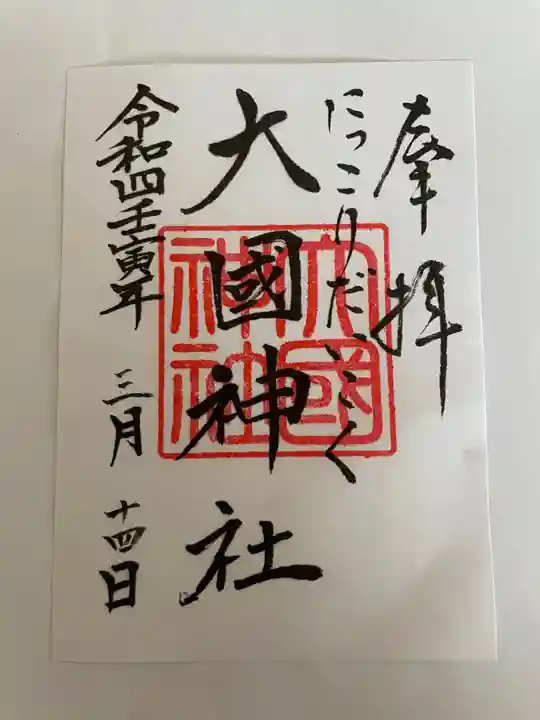 奉拝
にっこりだいこく
大國神社
大國神社
令和四壬寅年 三月 十四日